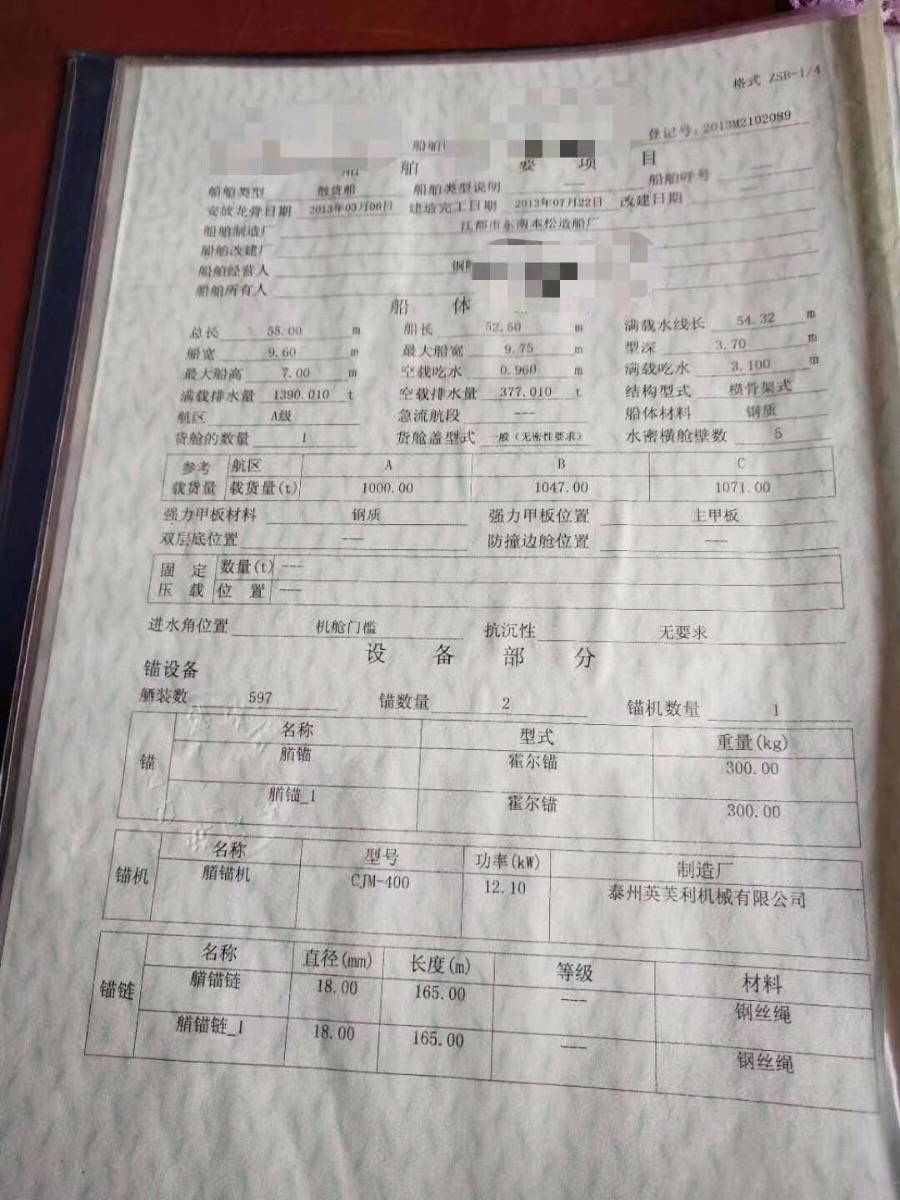 格式 ZSB-1/4
登记号: 2013M2102089
船舶
船舶要项目
船舶类型 散货船 船舶类型说明 --- 船舶呼号 ---
安放龙骨日期 2013年03月06日 建造完工日期 2013年07月22日 改建日期
船舶制造厂 江都市东南本松造船厂
船舶改建厂
船舶经营人
船舶所有人
船体
总长 55.00 m 船长 52.50 m 满载水线长 54.32 m
船宽 9.60 m 最大船宽 9.75 m 型深 3.70 m
最大船高 7.00 m 空载吃水 0.960 m 满载吃水 3.100 m
满载排水量 1390.010 t 空载排水量 377.010 t 结构型式 横骨架式
航区 A级 急流航段 --- 船体材料 钢质
货舱的数量 1 货舱盖型式 一般(无密性要求) 水密横舱壁数 5
参考 航区 A B C
载货量 载货量(t) 1000.00 1047.00 1071.00
强力甲板材料 钢质 强力甲板位置 主甲板
双层底位置 --- 防撞边舱位置 ---
固定 数量(t) ---
压载 位置 ---
进水角位置 机舱门槛 抗沉性 无要求
设备部分
锚设备
舾装数 597 锚数量 2 锚机数量 1
锚 名称 型式 重量(kg)
艏锚 霍尔锚 300.00
艏锚_1 霍尔锚 300.00
锚机 名称 型号 功率(kW) 制造厂
艏锚机 CJM-400 12.10 泰州英芙利机械有限公司
锚链 名称 直径(mm) 长度(m) 等级 材料
艏锚链 18.00 165.00 --- 钢丝绳
艏锚链_1 18.00 165.00 --- 钢丝绳